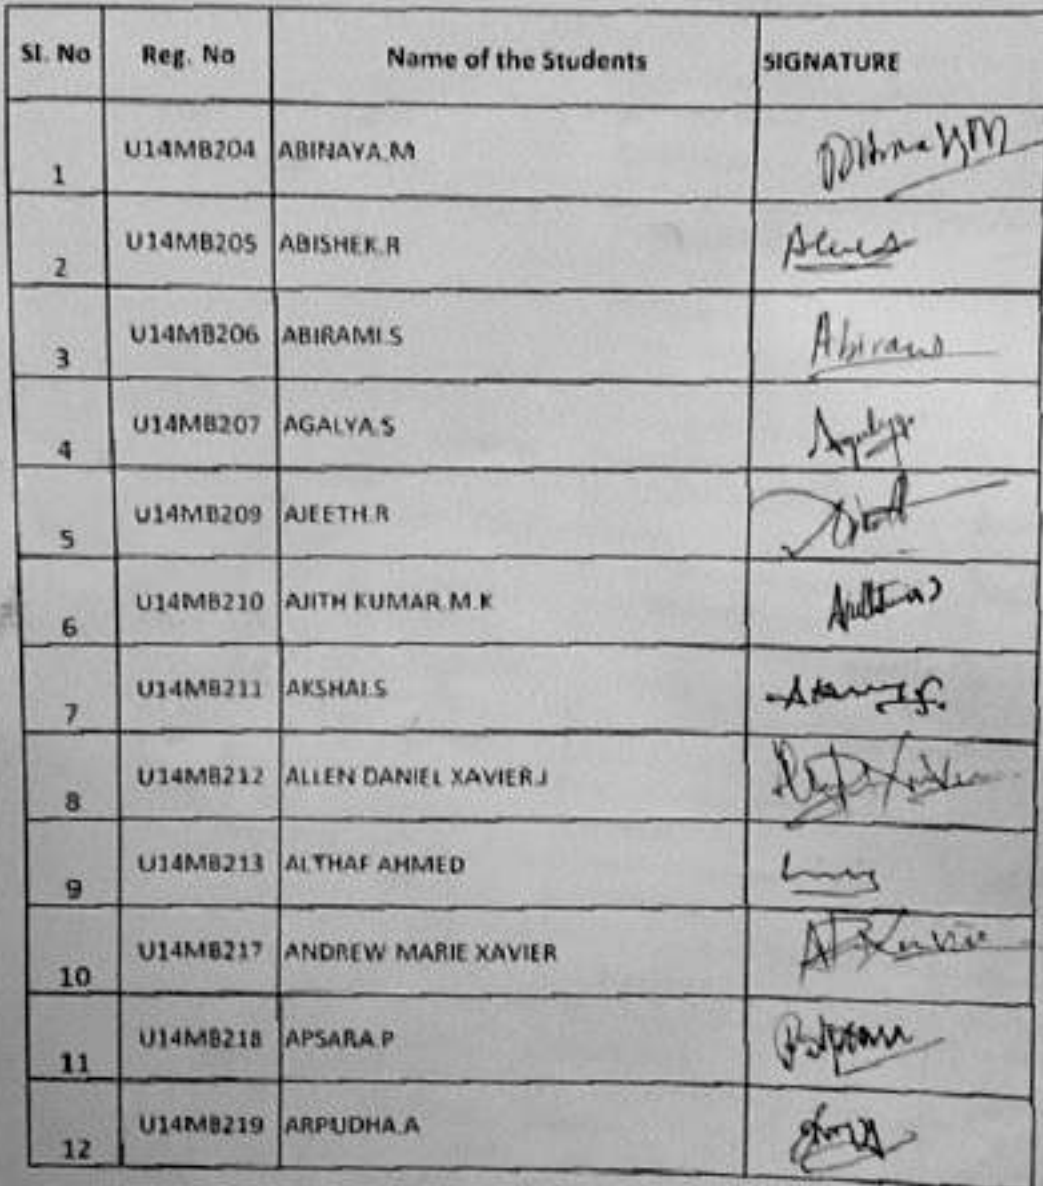 Sl. No Reg. No Name of the Students SIGNATURE
1 U14MB204 ABINAYA.M
2 U14MB205 ABISHEK.R
3 U14MB206 ABIRAMI.S
4 U14MB207 AGALYA.S Agalya
5 U14MB209 AJEETH.R
6 U14MB210 AJITH KUMAR.M.K
7 U14MB211 AKSHAI.S
8 U14MB212 ALLEN DANIEL XAVIER.J
9 U14MB213 ALTHAF AHMED
10 U14MB217 ANDREW MARIE XAVIER
11 U14MB218 APSARA.P
12 U14MB219 ARPUDHA.A